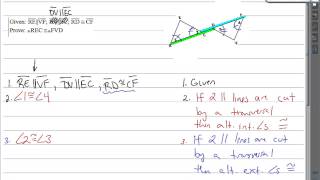 DV||EC
Given: RE||VF, RD ≅ CF
Prove: △REC ≅ △FVD
1. RE||VF, DV||EC, RD≅CF
1. Given
2. ∠1≅∠4
2. If 2 || lines are cut
by a transversal
then alt. int. ∠s ≅
3. ∠2≅∠3
3. If 2 || lines are cut
by a transversal
then alt. ext. ∠s ≅